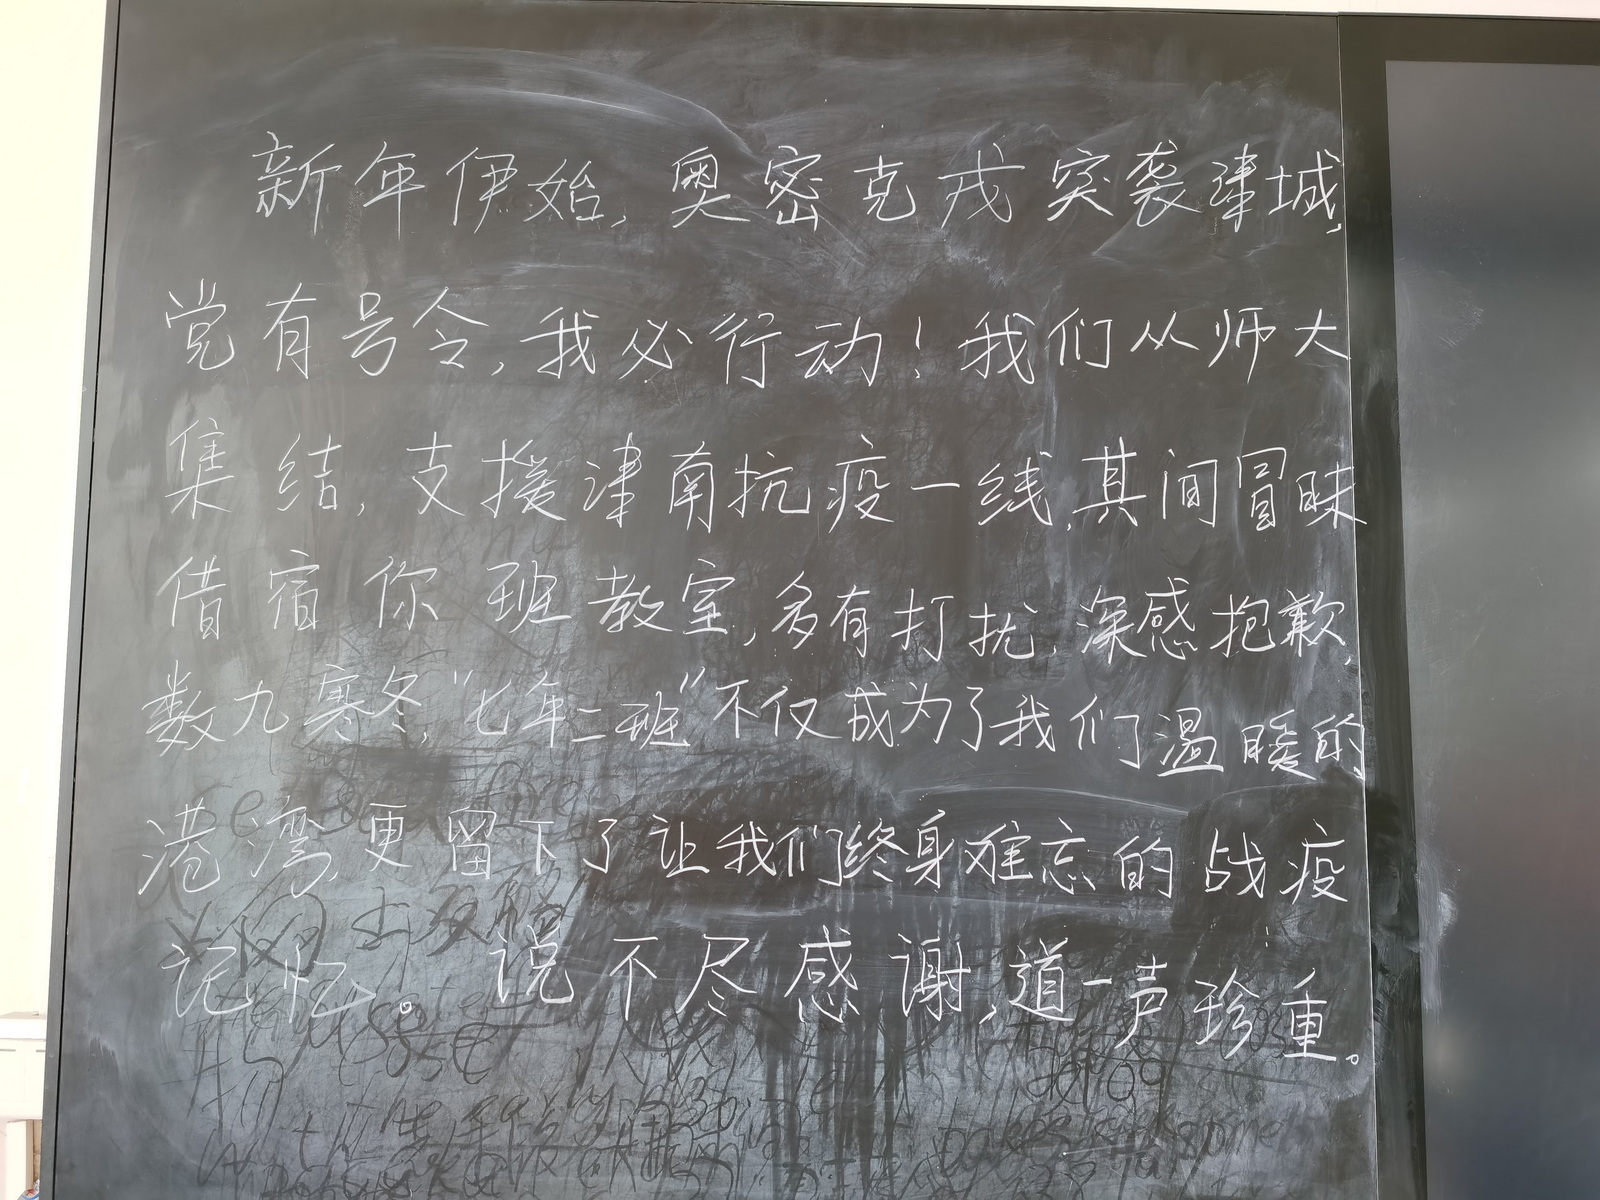 新年伊始,奥密克戎突袭津城,
党有号令,我必行动!我们从师大
集结,支援津南抗疫一线,其间冒昧
借宿你班教室,多有打扰,深感抱歉,
数九寒冬,“七年二班”不仅成为了我们温暖的
港湾,更留下了让我们终身难忘的战疫
记忆。说不尽感谢,道一声珍重。